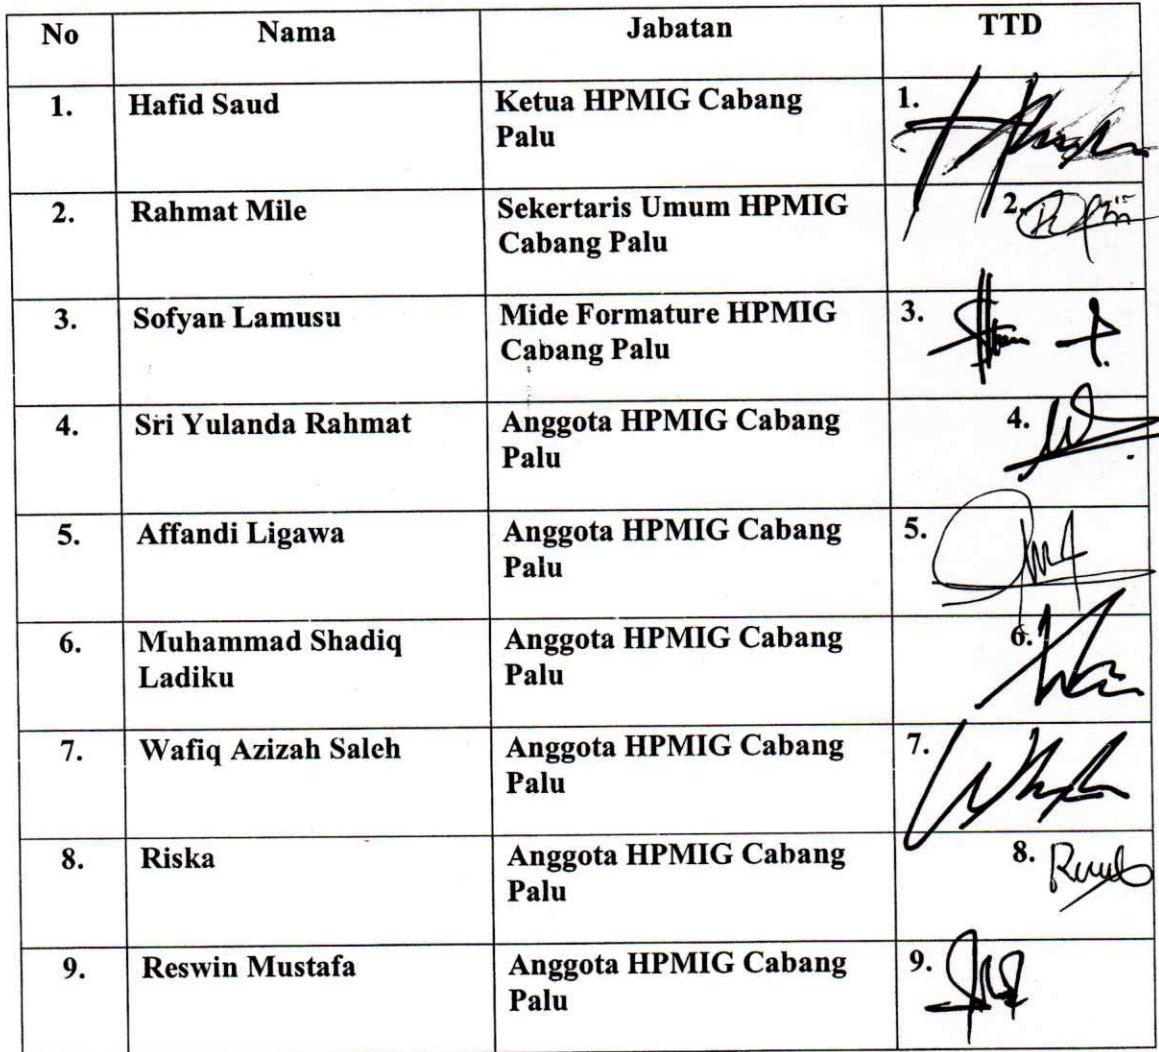 No Nama Jabatan TTD
1. Hafid Saud Ketua HPMIG Cabang 1.
Palu
2. Rahmat Mile Sekertaris Umum HPMIG 2.
Cabang Palu
3. Sofyan Lamusu Mide Formature HPMIG 3.
Cabang Palu
4. Sri Yulanda Rahmat Anggota HPMIG Cabang 4.
Palu
5. Affandi Ligawa Anggota HPMIG Cabang 5.
Palu
6. Muhammad Shadiq Anggota HPMIG Cabang 6.
Ladiku Palu
7. Wafiq Azizah Saleh Anggota HPMIG Cabang 7.
Palu
8. Riska Anggota HPMIG Cabang 8.
Palu
9. Reswin Mustafa Anggota HPMIG Cabang 9.
Palu